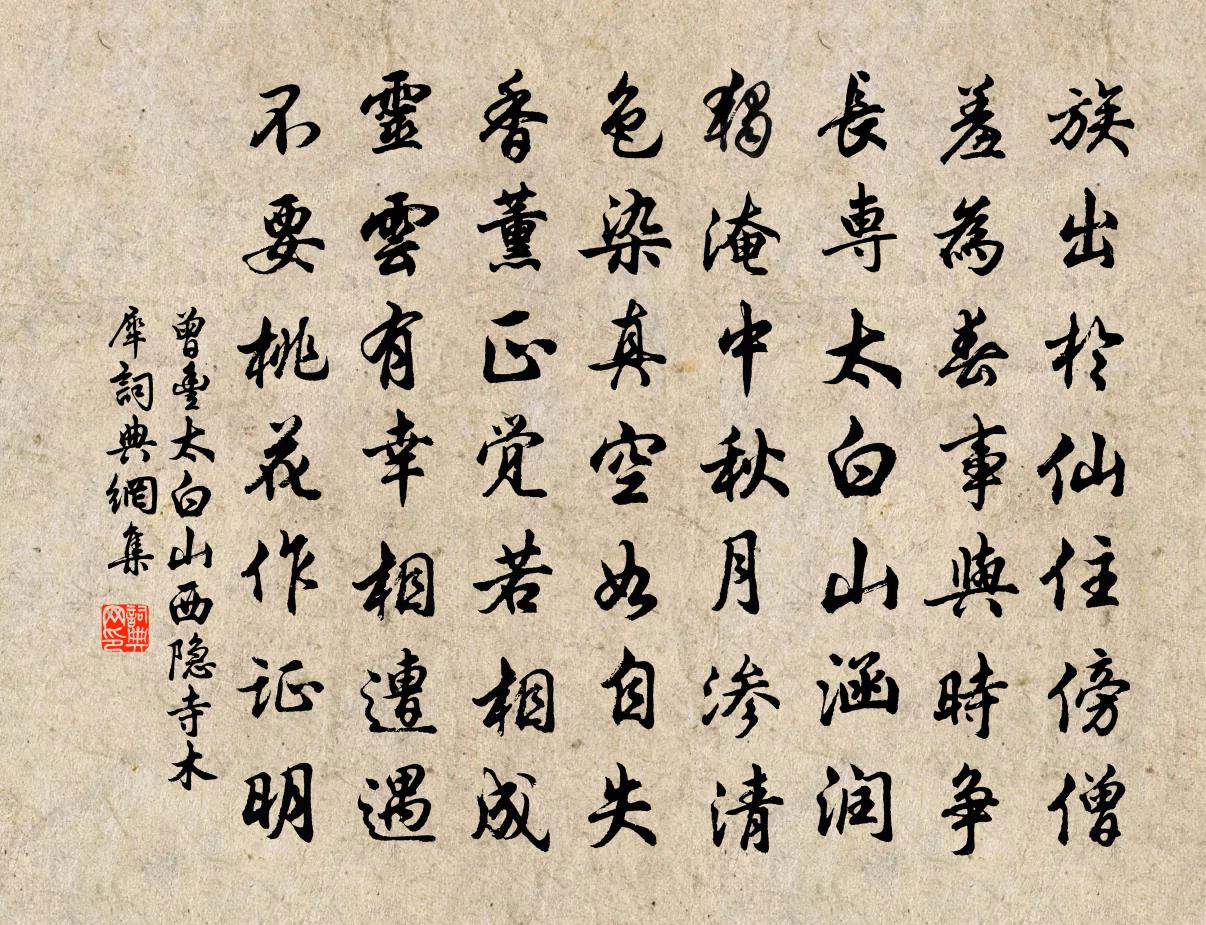 族出於仙住傍僧
羞為春事與時争
長専太白山涵润
独淹中秋月渗清
色染真空如自失
香薰正觉若相成
靈雲有幸相遭遇
不要桃花作证明
曾豊太白山西隐寺木
犀詞典網集
詞典网印